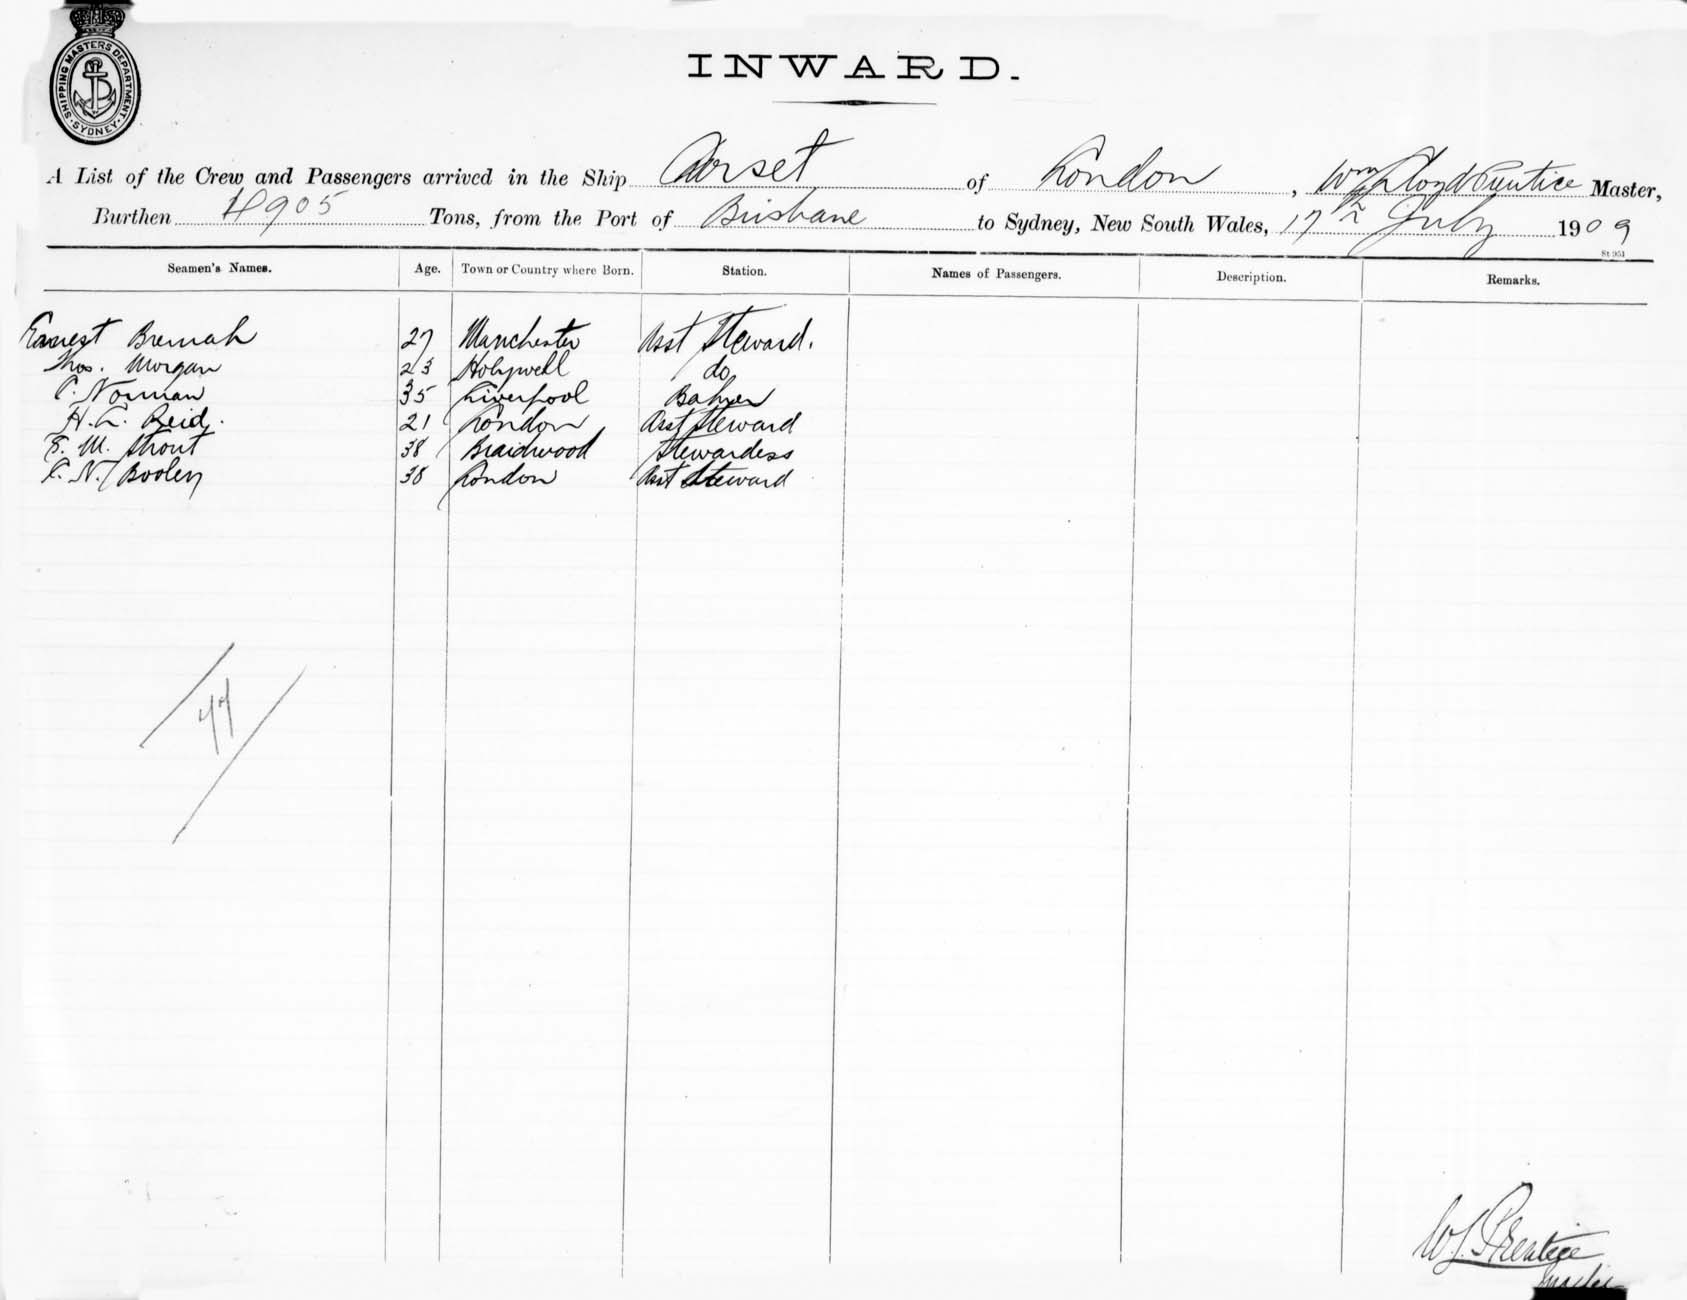 SHIPPING MASTERS DEPARTMENT. SYDNEY.
INWARD.
A List of the Crew and Passengers arrived in the Ship Dorset of London, Wm Lloyd Prentice Master,
Burthen 4905 Tons, from the Port of Brisbane to Sydney, New South Wales, 17th July 1909
St 951
Seamen's Names. Age. Town or Country where Born. Station. Names of Passengers. Description. Remarks.
Ernest Bremah 27 Manchester Asst Steward.
Thos. Morgan 23 Holywell do
Norman 35 Liverpool Baker
Reid. 21 London Asst Steward
E. M. Strout 38 Braidwood Stewardess
Booley 38 London Asst Steward
77
W L Prentice
Master